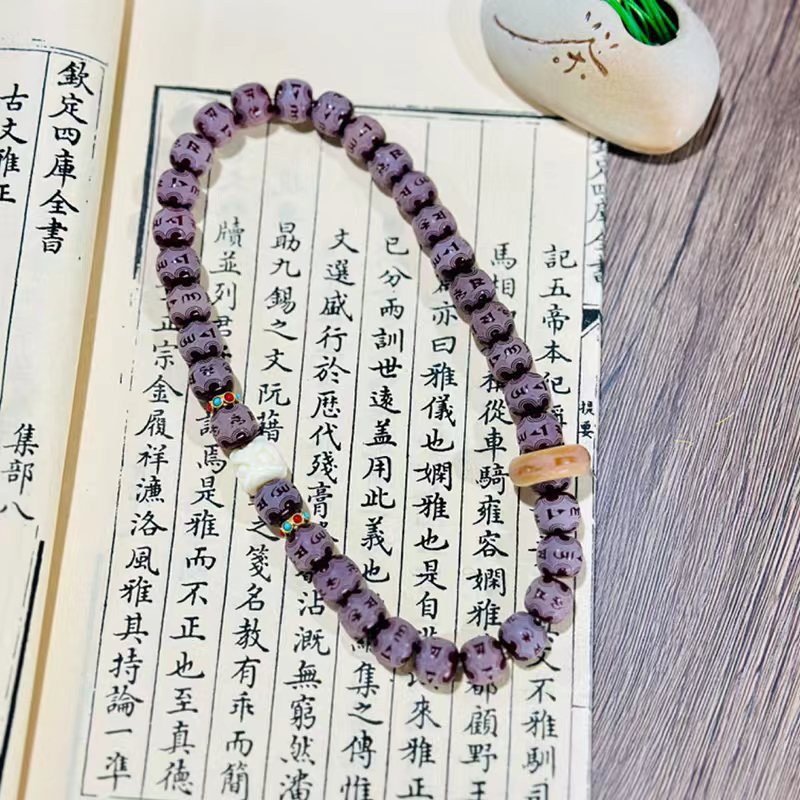 全書
提要
記五帝本紀稱文不雅馴司
馬相從車騎雍容嫻雅都顧野王
亦曰雅儀也嫻雅也是自來雅正
已分兩訓世遠蓋用此義也集之傳惟
文選盛行於歷代殘膏沾溉無窮然潘
勗九錫之文阮籍之箋名教有乖而簡
牘並列君焉是雅而不正也至真德
正宗金履祥濂洛風雅其持論一準
欽定四庫全書
集部八
古文雅正